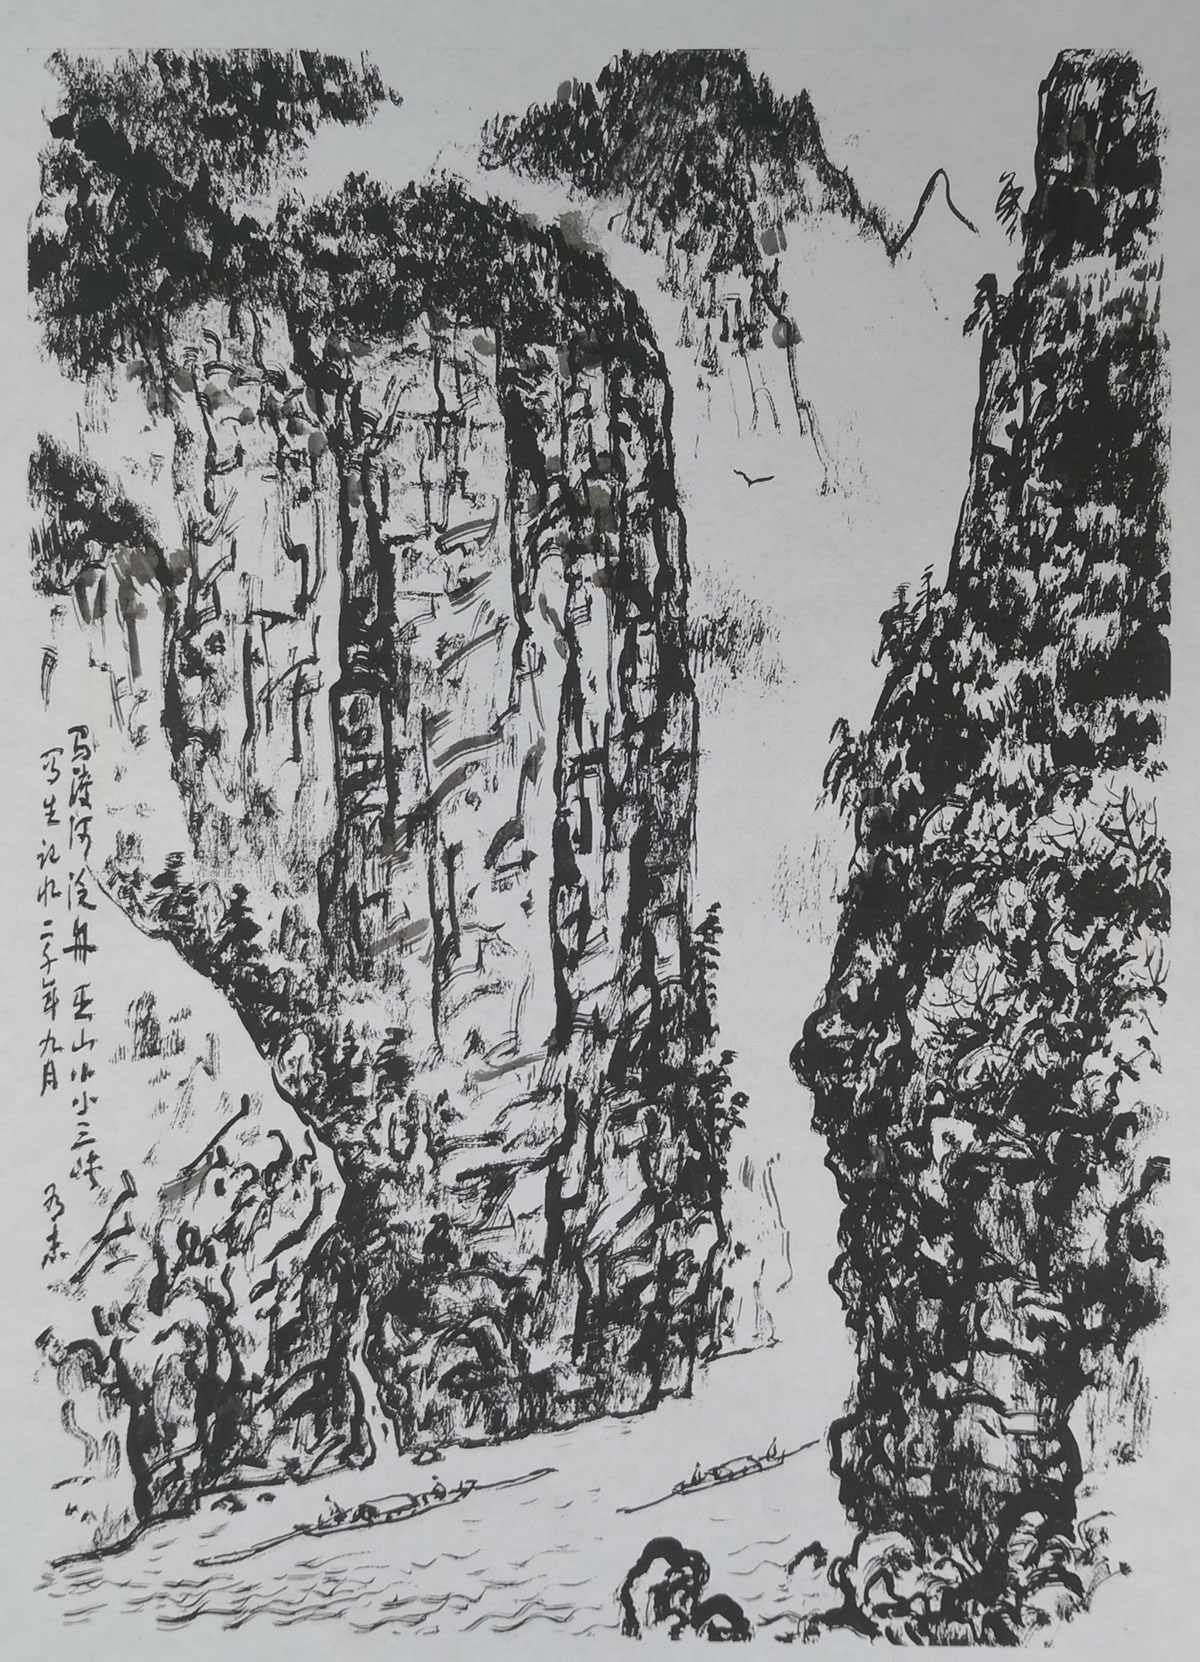 马渡河泛舟巫山小小三峡
写生记水二千年九月